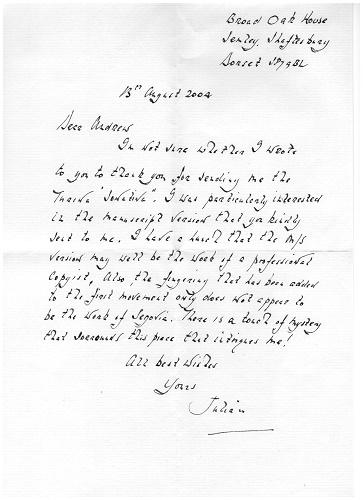 Broad Oak House
Semley, Shaftesbury
Dorset SP7 9BL
13th August 2004
Dear Andrew
I'm not sure whether I wrote
to you to thank you for sending me the
Turina "Sonatina". I was particularly interested
in the manuscript version that you kindly
sent to me. I have a hunch that the M/S
version may well be the work of a professional
Copyist, Also, the fingering that has been added
to the first movement only does not appear to
be the work of Segovia. There is a touch of mystery
that sorrounds this piece that intrigues me!
All best wishes
Yours
Julian